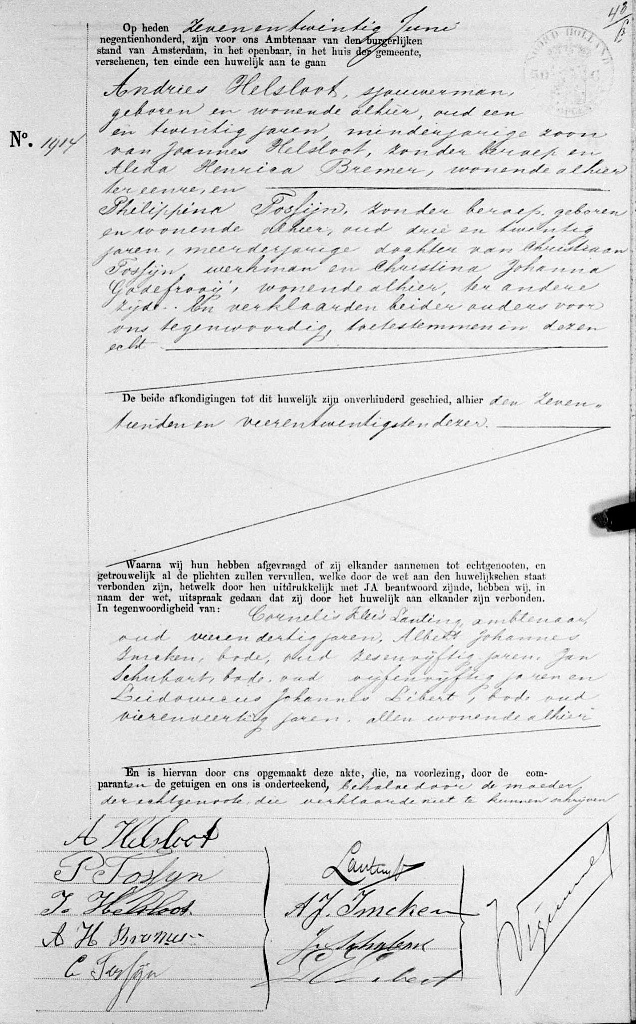 48
Op heden Zeven en twintig Juni
negentienhonderd, zijn voor ons Ambtenaar van den burgerlijken
stand van Amsterdam, in het openbaar, in het huis der gemeente,
verschenen, ten einde een huwelijk aan te gaan
NOORD HOLLAND
No. 1914
Andries Helsloot, sjouwerman,
geboren en wonende alhier, oud een
en twintig jaren, minderjarige zoon
van Joannes Helsloot, zonder beroep en
Alida Henrica Bremer, wonende alhier
ter eenre, en
Philippina Tossijn, zonder beroep, geboren
en wonende alhier, oud drie en twintig
jaren, meerderjarige dochter van Christiaan
Tossijn, werkman en Christina Johanna
Godefrooij, wonende alhier, ter andere
zijde. En verklaarden beider ouders voor
ons tegenwoordig, toetestemmen in dezen
echt
De beide afkondigingen tot dit huwelijk zijn onverhinderd geschied, alhier den zeven-
tienden en vierentwintigsten dezer.
Waarna wij hun hebben afgevraagd of zij elkander aannemen tot echtgenooten, en
getrouwelijk al de plichten zullen vervullen, welke door de wet aan den huwelijkschen staat
verbonden zijn, hetwelk door hen uitdrukkelijk met JA beantwoord zijnde, hebben wij, in
naam der wet, uitspraak gedaan dat zij door het huwelijk aan elkander zijn verbonden.
In tegenwoordigheid van: Cornelis Lauting, ambtenaar,
oud vierendertig jaren, Albert Johannes
Imeken, bode, oud zesenvijftig jaren, Jan
Schubart, bode, oud vijfenvijftig jaren en
Ludovicus Johannes Libert, bode oud
vierenveertig jaren, allen wonende alhier
En is hiervan door ons opgemaakt deze akte, die, na voorlezing, door de com-
paranten de getuigen en ons is onderteekend, behalve door de moeder
der echtgenoote, die verklaarde niet te kunnen schrijven
A Helsloot
P Tossyn
Jo Helsloot
A H Bremer
C Tossÿn
Lauting
A. J. Imeken
J Schubart
L J Libert